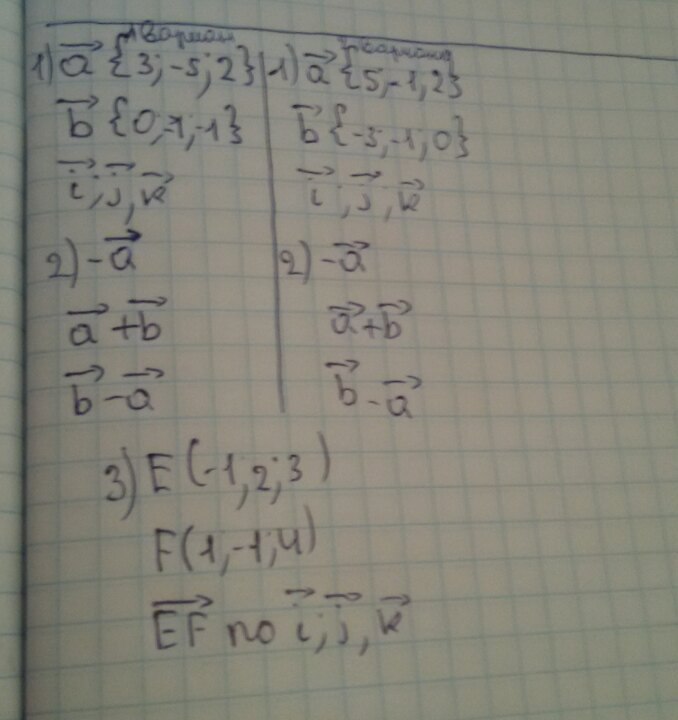 1 Вариант
1) a⃗ {3; -5; 2}
b⃗ {0; -1; -1}
i⃗, j⃗, k⃗
2) -a⃗
a⃗ + b⃗
b⃗ - a⃗
2 Вариант
1) a⃗ {5; -1; 2}
b⃗ {-3; -1; 0}
i⃗, j⃗, k⃗
2) -a⃗
a⃗ + b⃗
b⃗ - a⃗
3) E (-1; 2; 3)
F(1; -1; 4)
EF⃗ по i⃗, j⃗, k⃗